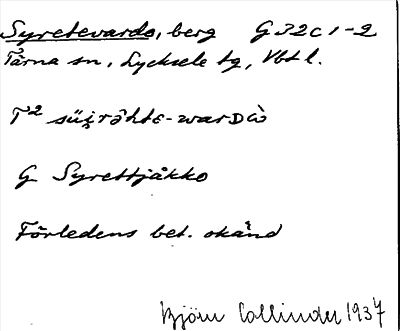 Syretevardo, berg G 32 C 1-2
Tärna sn, Lycksele tg, Vbtl.
T² süi̯rɔ̄htɛ-warᴅὼ
G Syrettjåkko
Förledens bet. okänd
Björn Collinder 1937